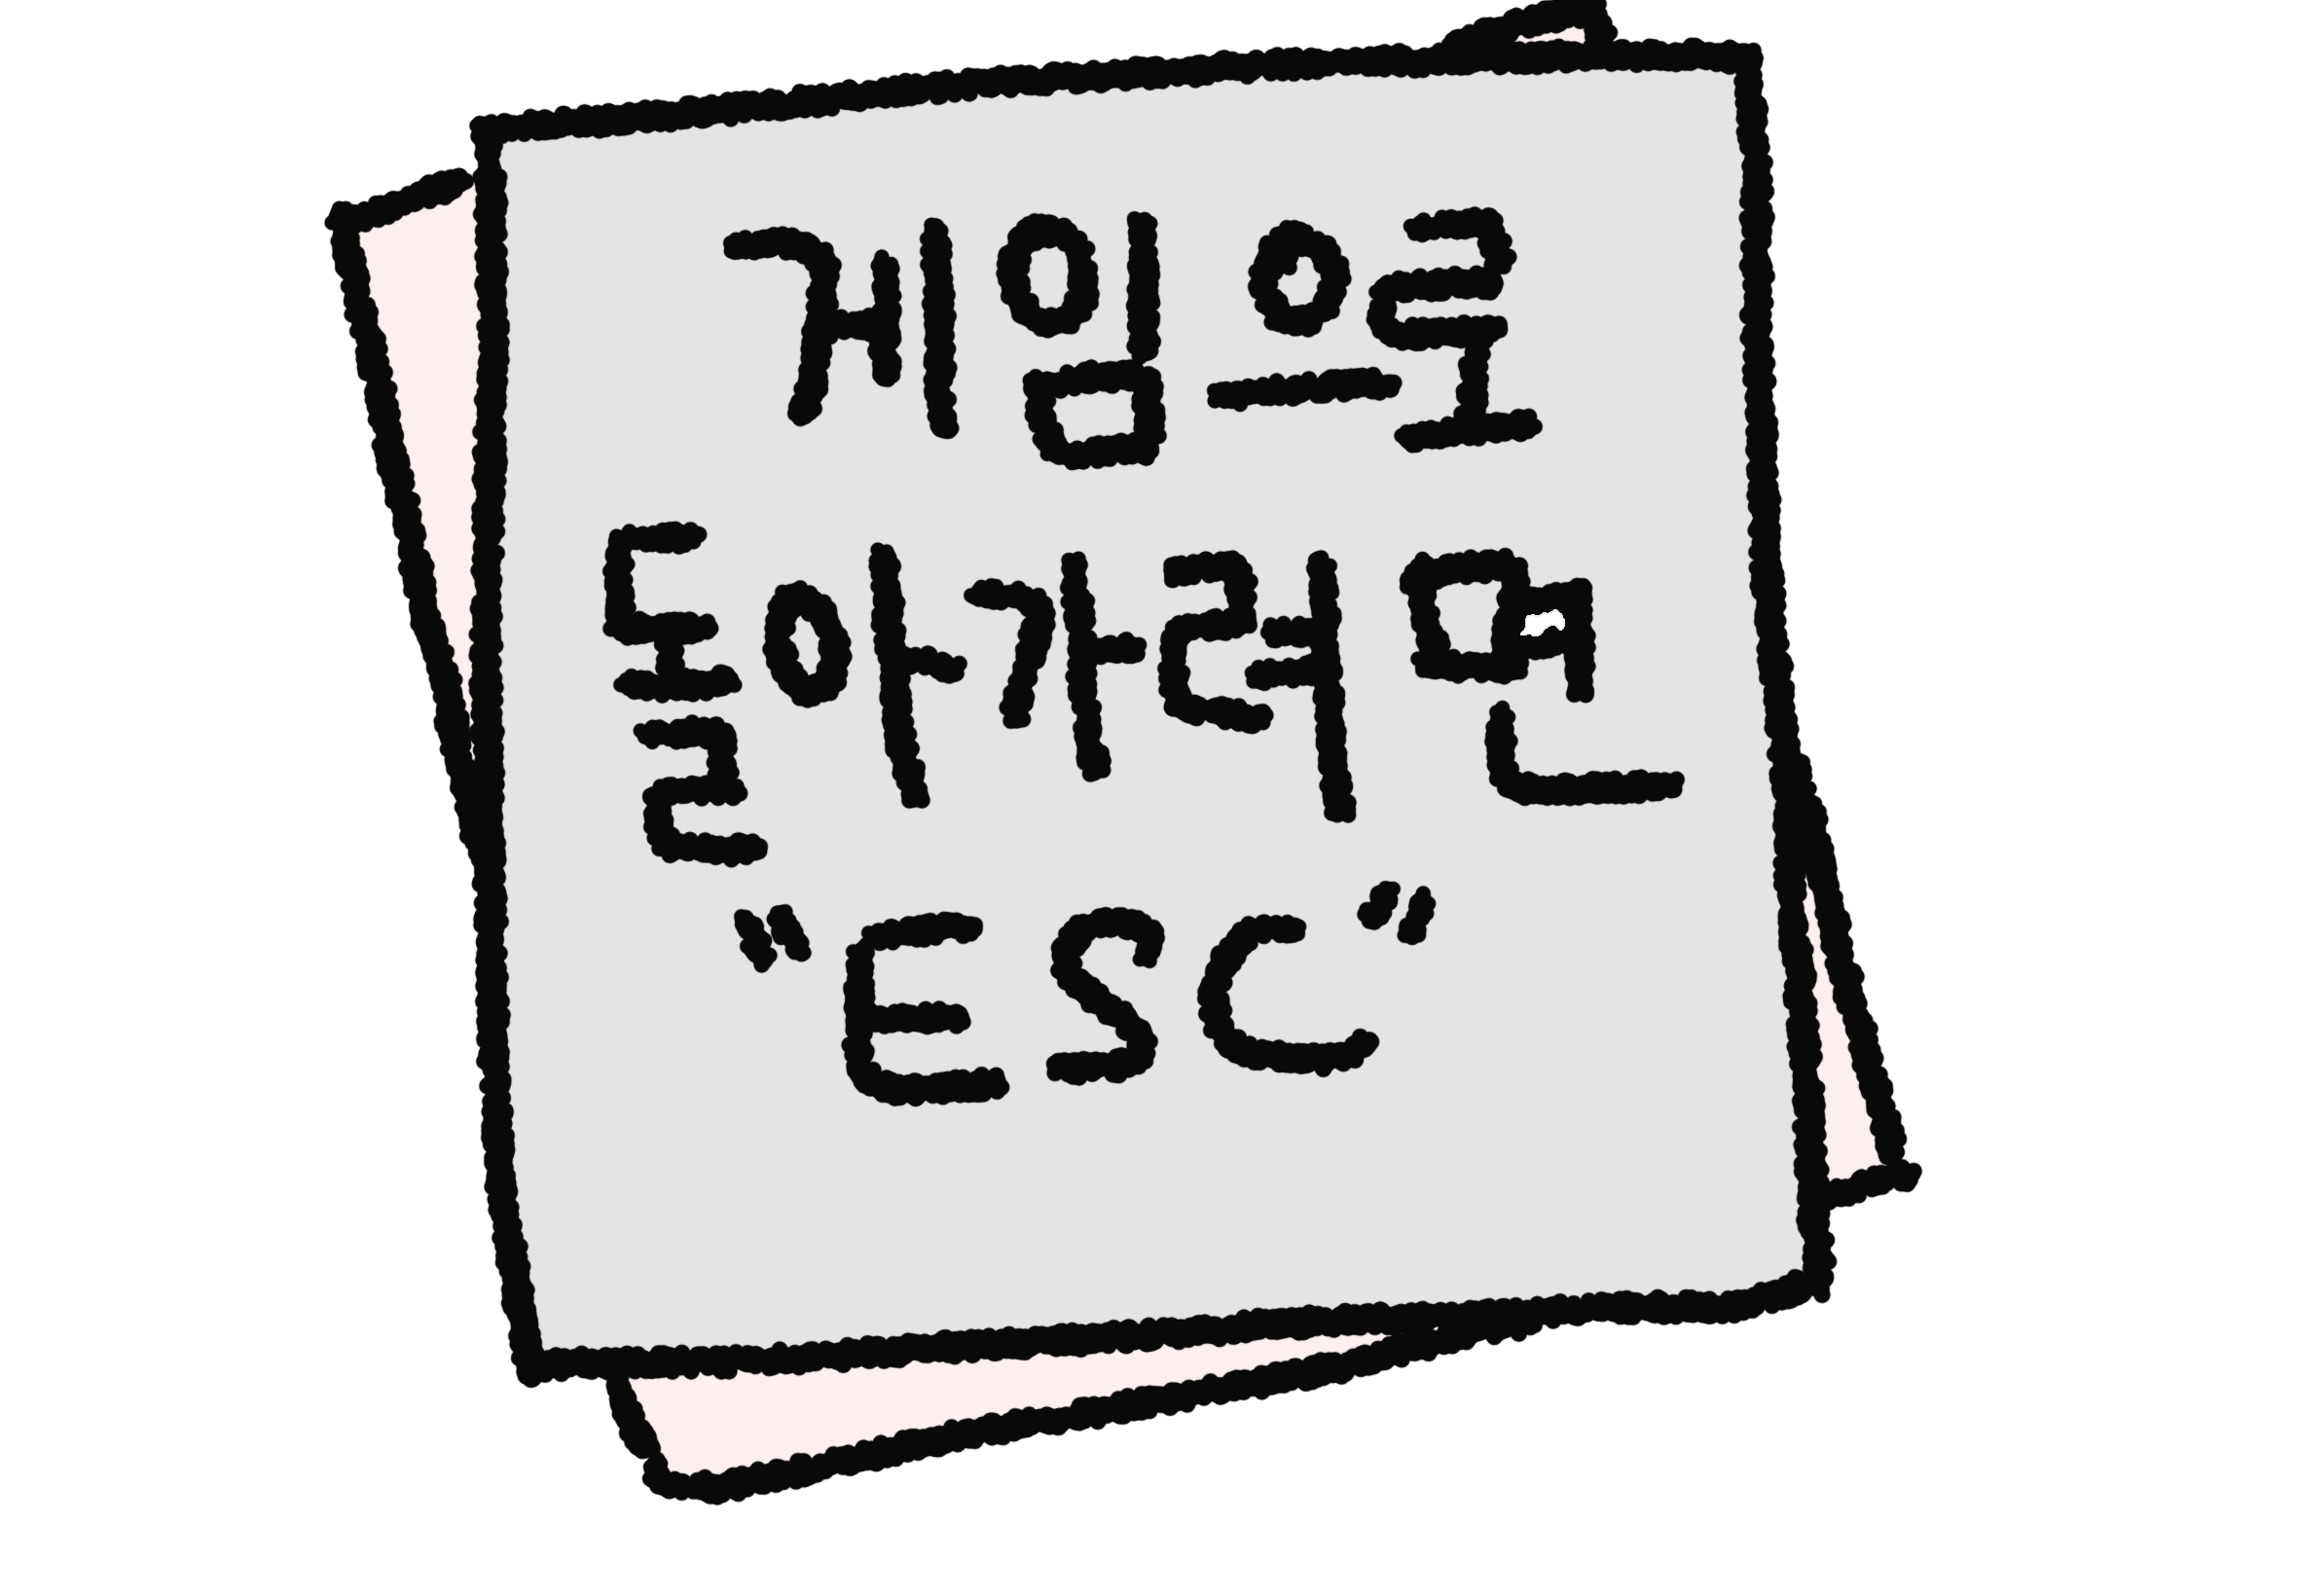 게임으로
돌아가려면
"ESC"